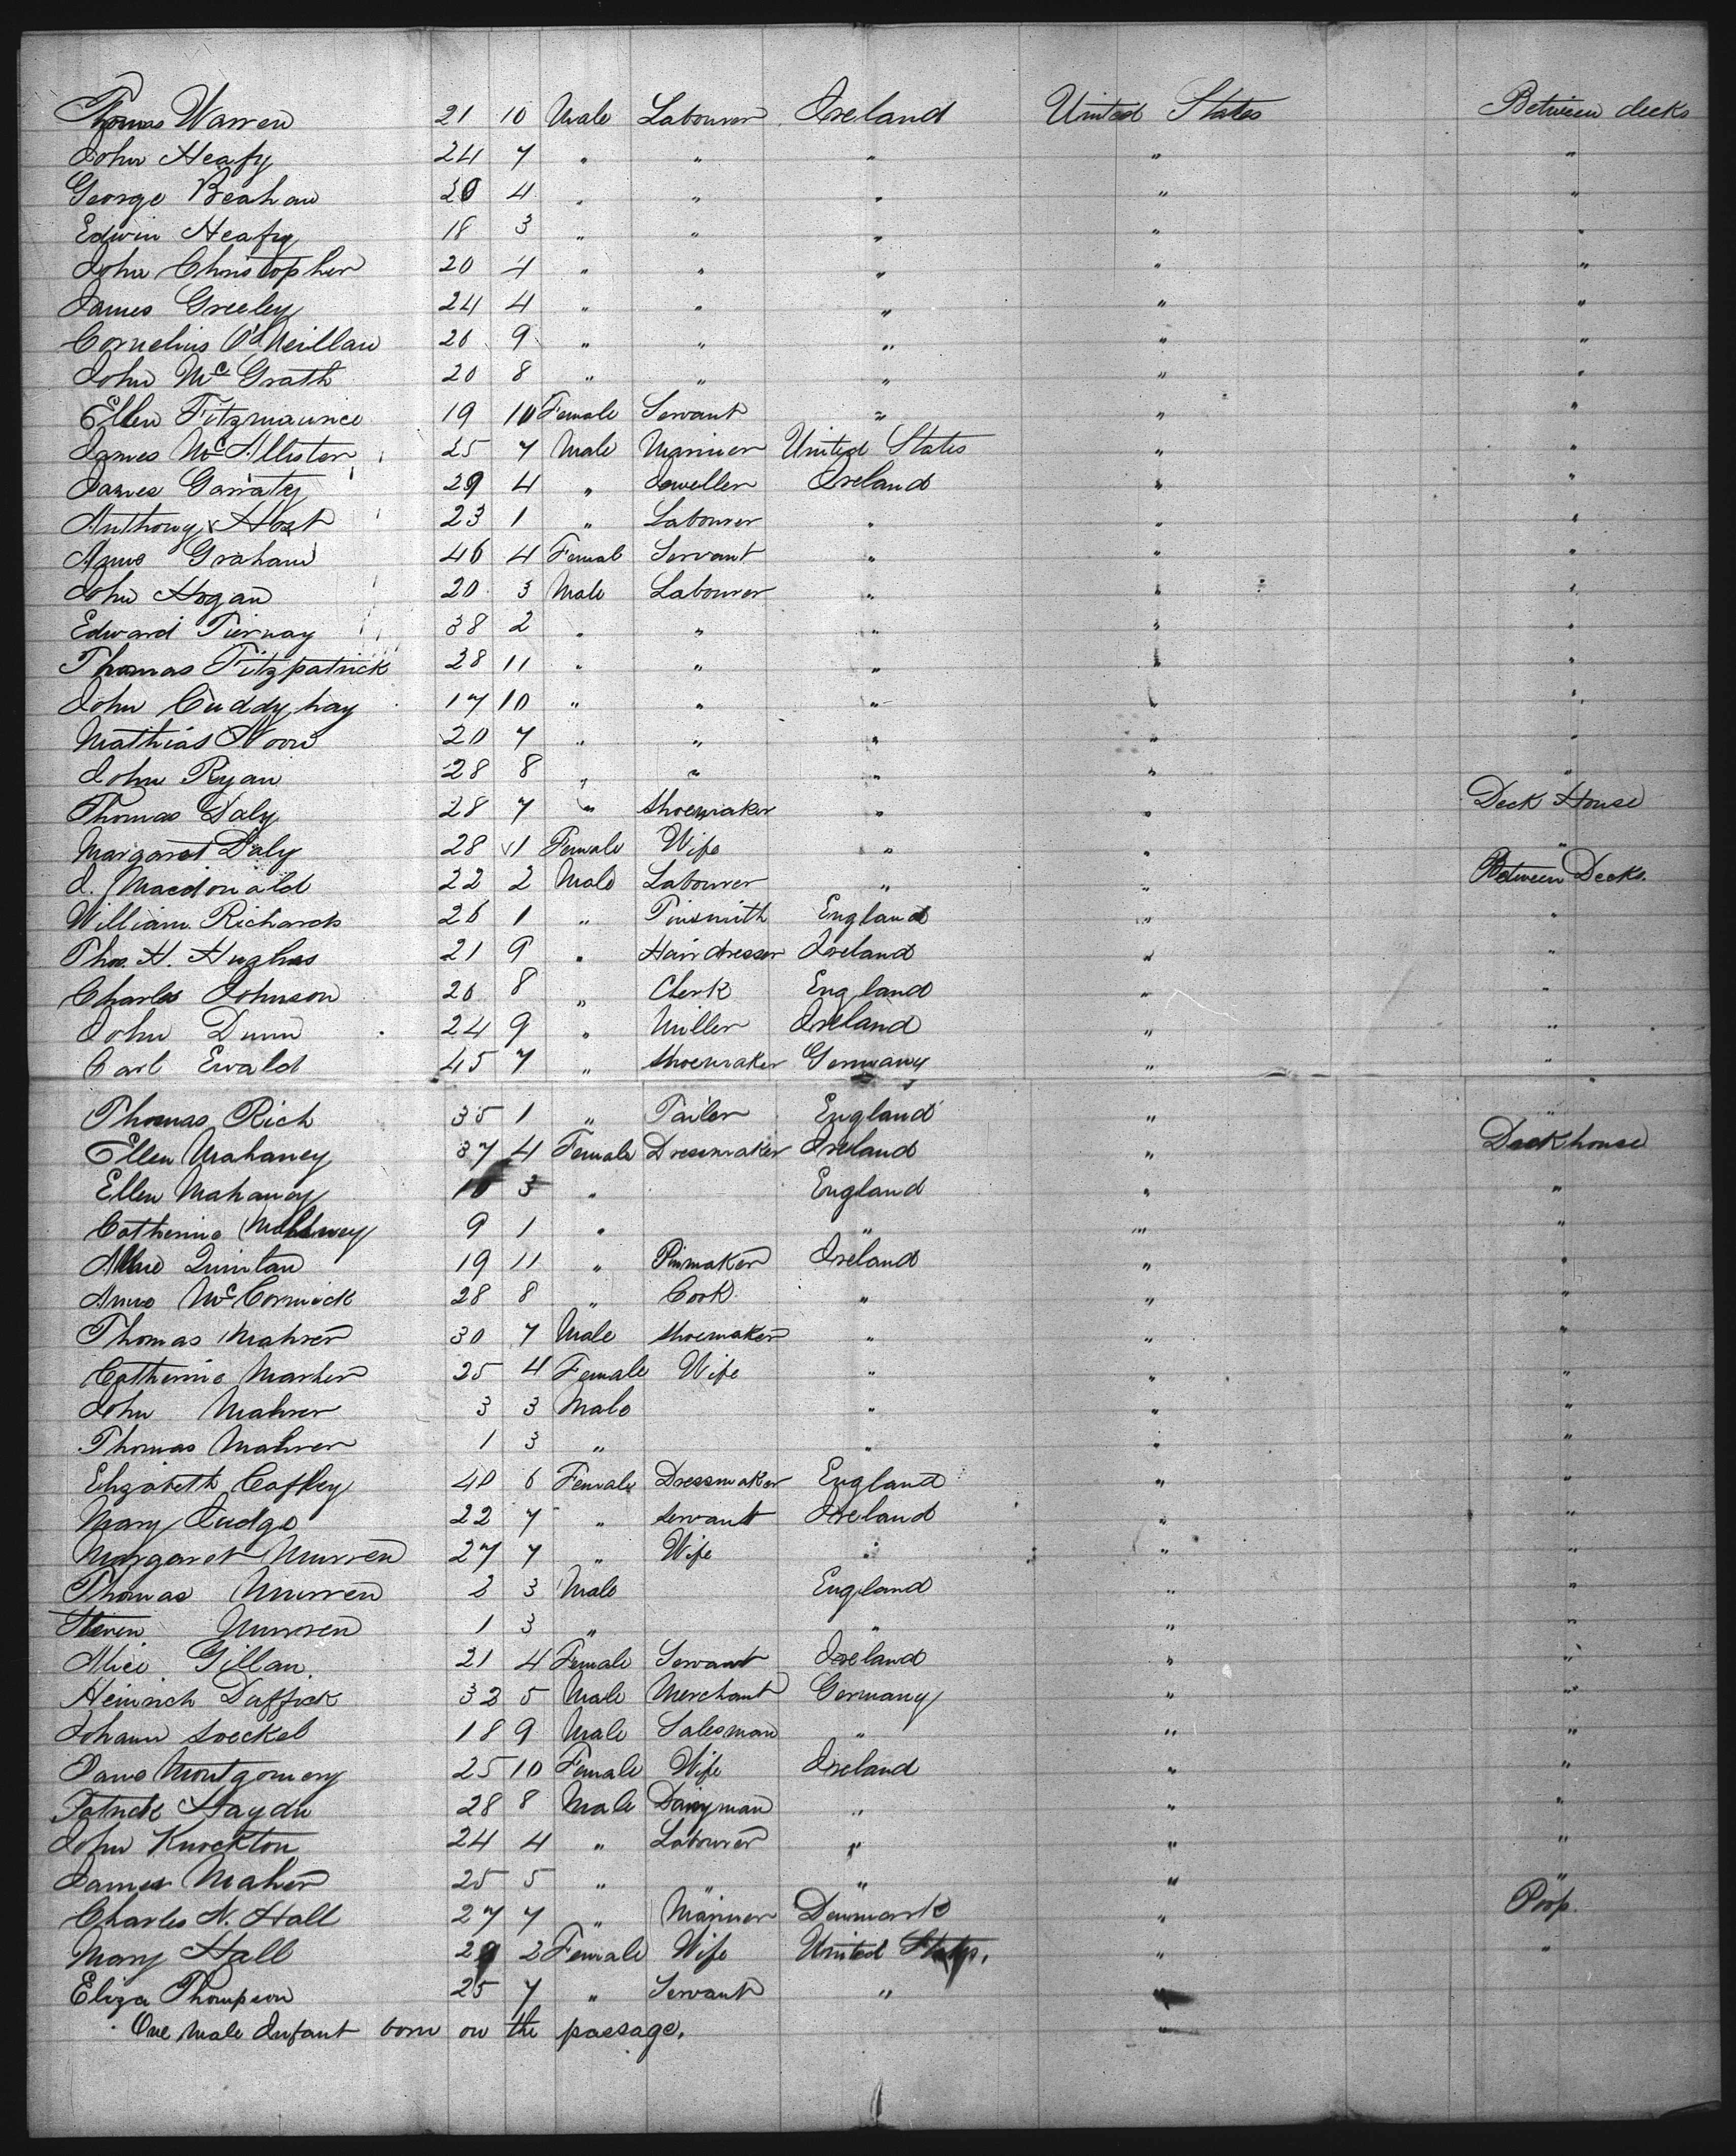 Thomas Warren 21 10 Male Labourer Ireland United States Between decks
John Heafy 24 7 " " " " "
George Beahan 20 4 " " " " "
Edwin Heafy 18 3 " " " " "
John Christopher 20 4 " " " " "
James Greeley 24 4 " " " " "
Cornelius 26 9 " " " " "
John McGrath 20 8 " " " " "
Ellen Fitzmaurice 19 10 Female Servant " " "
James McAllister 25 7 Male Mariner United States " "
James Garraty 29 4 " Jeweller Ireland " "
Anthony 23 1 " Labourer " " "
Anne Graham 46 4 Female Servant " " "
John Hogan 20 3 Male Labourer " " "
Edward Tiernay 38 2 " " " " "
Thomas Fitzpatrick 28 11 " " " " "
John Cuddyhay 17 10 " " " " "
Mathias Noon 20 7 " " " " "
John Ryan 28 8 " " " " "
Thomas Daly 28 7 " Shoemaker " " Deck House
Margaret Daly 28 1 Female Wife " " "
J. Macdonald 22 2 Male Labourer " " Between Decks.
William Richards 26 1 " Tinsmith England " "
Thos. H. Hughes 21 9 " Hair dresser Ireland " "
Charles Johnson 26 8 " Clerk England " "
John Dunn 24 9 " Miller Ireland " "
Carl Ewald 45 7 " Shoemaker Germany " "
Thomas Rich 35 1 " Tailor England " "
Ellen Mahaney 37 4 Female Dressmaker Ireland " Deckhouse
Ellen Mahaney 3 " England " "
Catherine Mahaney 9 1 " " " "
Quinlan 19 11 " Ireland " "
Anne McCormick 28 8 " Cook " " "
Thomas Mahrer 30 7 Male Shoemaker " " "
Catherine Marher 25 4 Female Wife " " "
John Mahrer 3 3 Male " " "
Thomas Mahrer 1 3 " " " "
Elizabeth Caffley 40 6 Female Dressmaker England " "
Mary Judge 22 7 " Servant Ireland " "
Margaret Murren 27 7 " Wife " " "
Thomas Murren 2 3 Male England " "
Steven Murren 1 3 " " " "
Alice Gillan. 21 4 Female Servant Ireland " "
Heinrich Daffick 32 5 Male Merchant Germany " "
Johann Soeckel 18 9 Male Salesman " " "
Montgomery 25 10 Female Wife Ireland " "
Patrick Haydn 28 8 Male Dairyman " " "
John Knockton 24 4 " Labourer " " "
James Maher 25 5 " " " " "
Charles N. Hall 27 7 " Mariner Denmark " Poop.
Mary Hall 29 2 Female Wife United States. " "
Eliza Thompson 25 7 " Servant " "
One Male Infant born on the passage. "